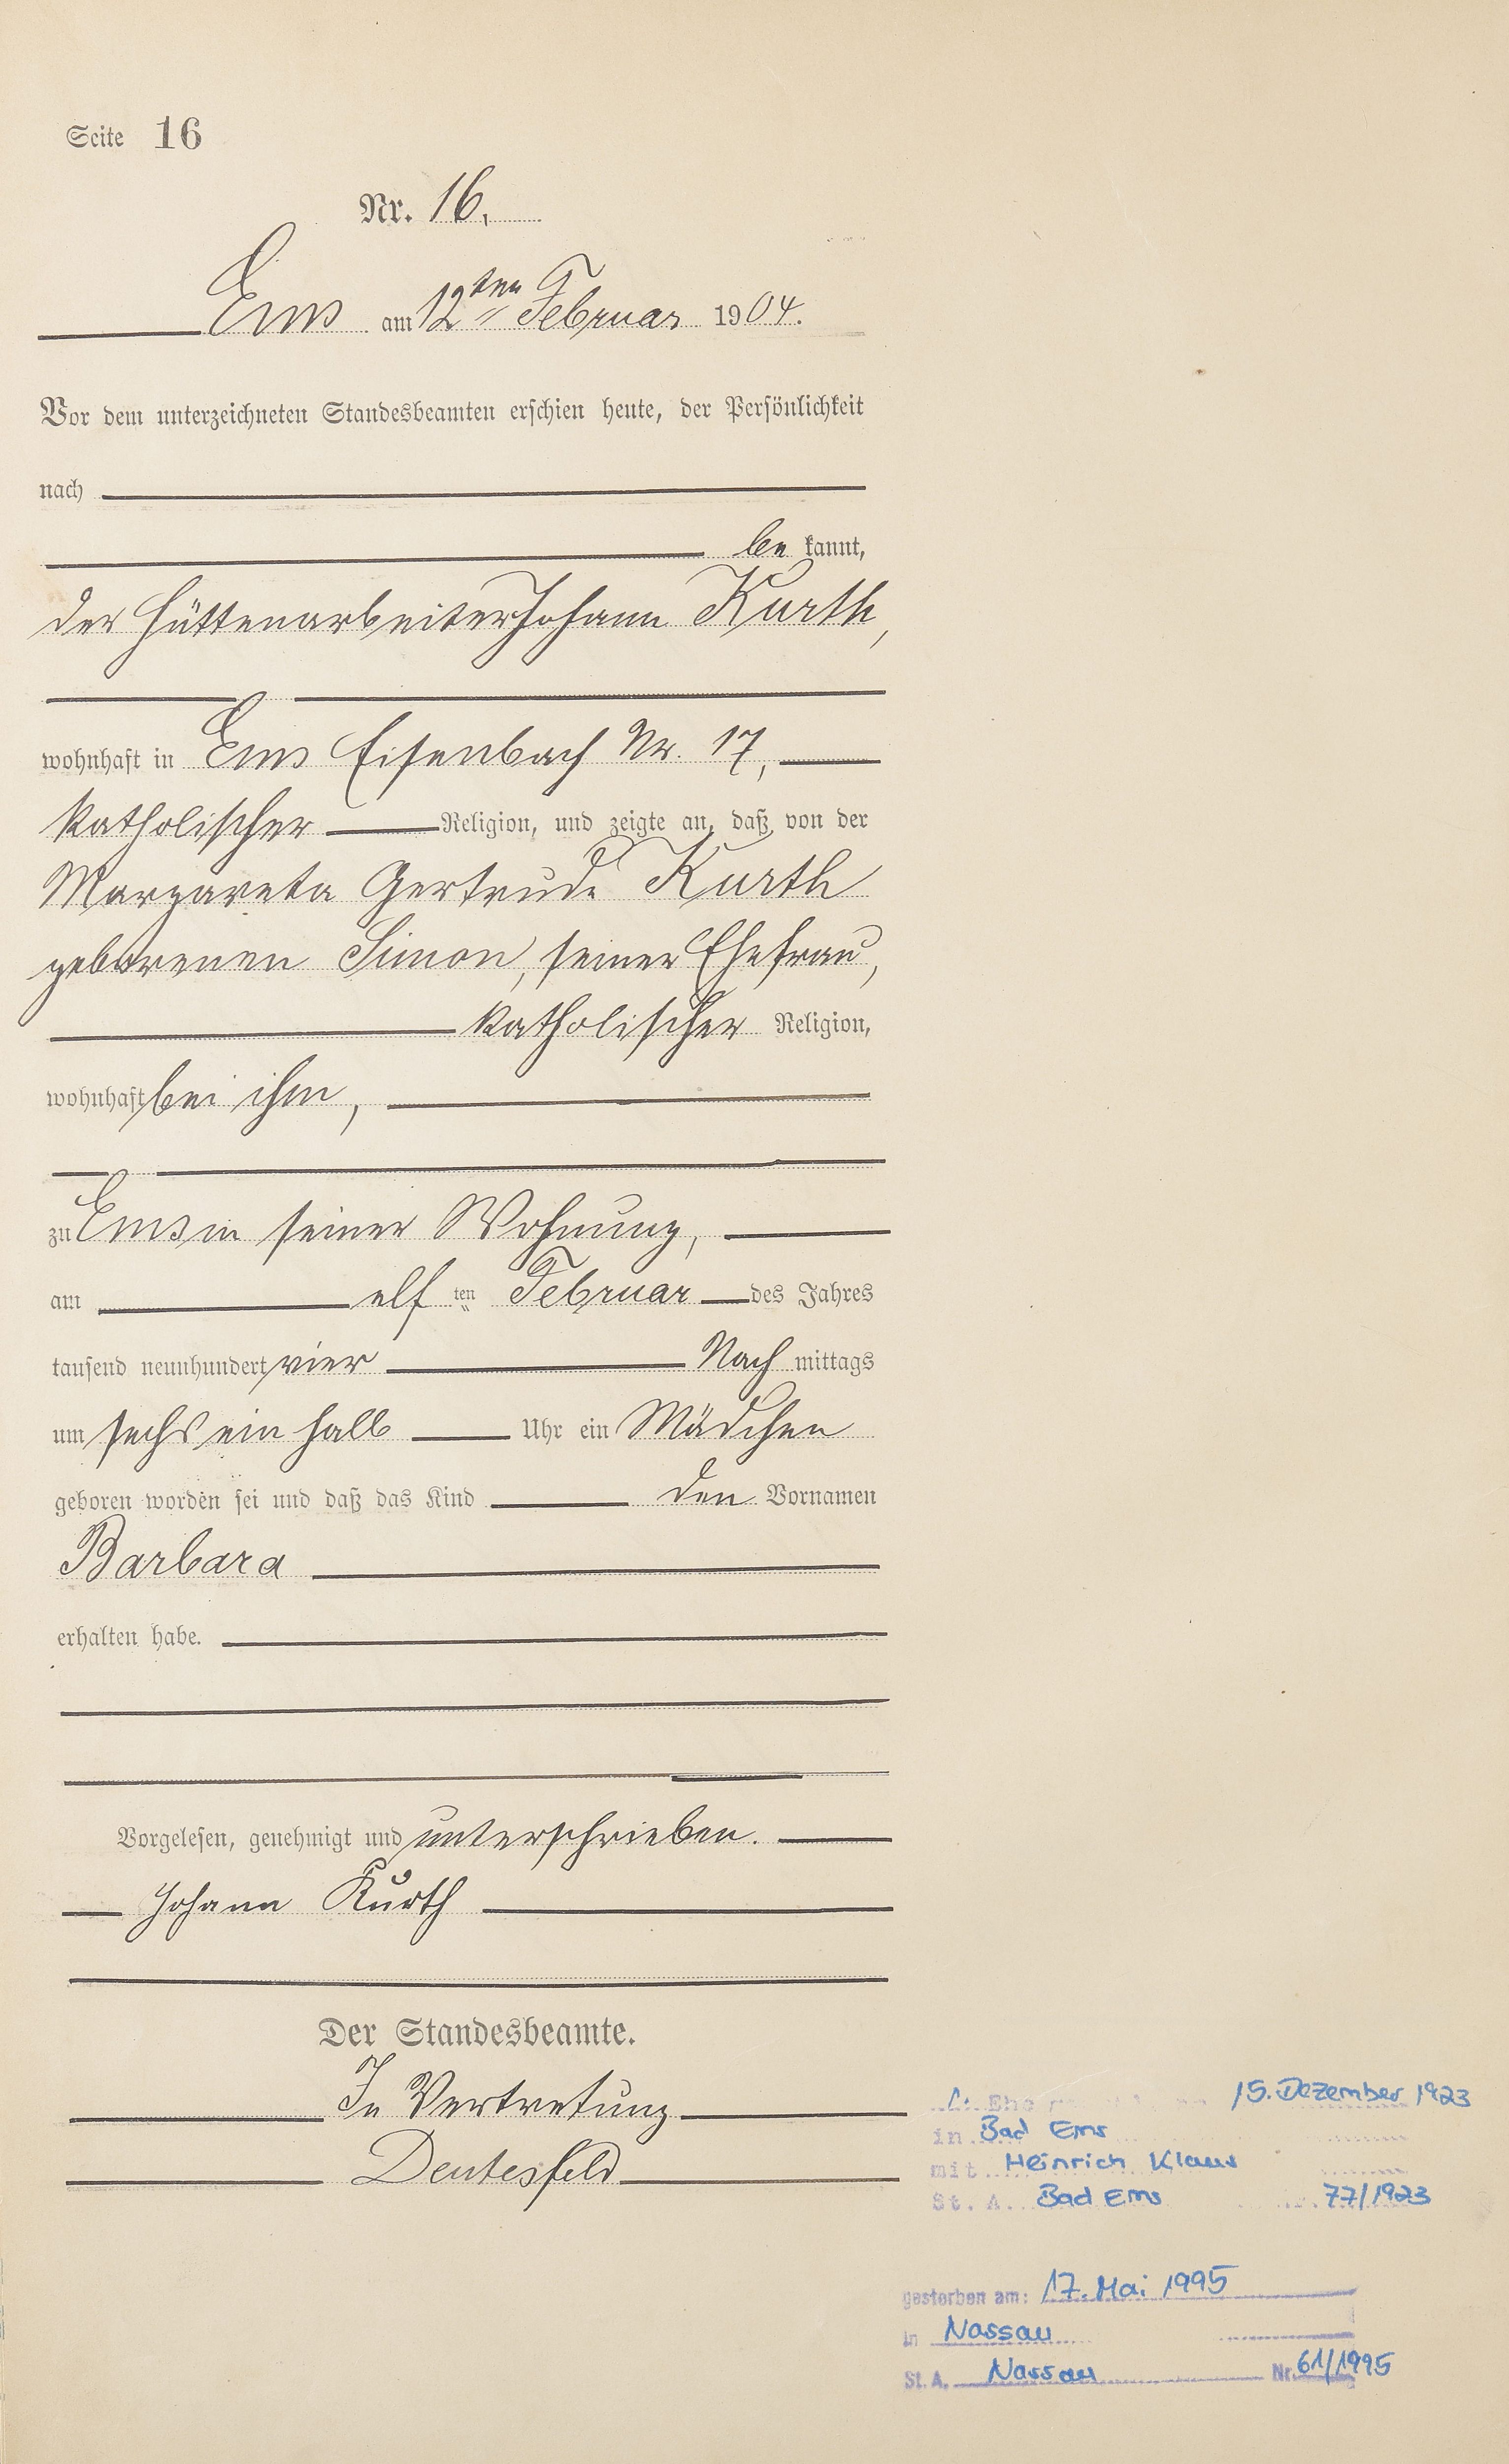 Seite 16
Nr. 16.
Ems am 12ten Februar 1904.
Vor dem unterzeichneten Standesbeamten erschien heute, der Persönlichkeit
nach
be kannt,
der Hüttenarbeiter Johann Kurth,
wohnhaft in Ems Eisenbach Nr. 17,
katholischer Religion, und zeigte an, daß von der
Margareta Gertrude Kurth
geborenen Simon, seiner Ehefrau,
katholischer Religion,
wohnhaft bei ihm,
zu Ems in seiner Wohnung,
am elf ten Februar des Jahres
tausend neunhundert vier Nach mittags
um sechs ein halb Uhr ein Mädchen
geboren worden sei und daß das Kind den Vornamen
Barbara
erhalten habe.
Vorgelesen, genehmigt und unterschrieben.
Johann Kurth
Der Standesbeamte.
In Vertretung
Deutesfeld
1. Ehe 15. Dezember 1923
in Bad Ems
mit Heinrich Klaus
St. A. Bad Ems 77/1923
gestorben am: 17. Mai 1995
in Nassau
St. A. Nassau Nr. 61/1995